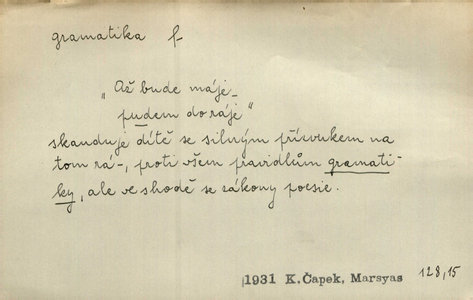 gramatika f.
„Až bude máje_
pudem do ráje"
skanduje dítě se silným přízvukem na
tom rá-, proti všem pravidlům gramati-
ky, ale ve shodě se zákony poesie.
1931 K. Čapek, Marsyas 128,15